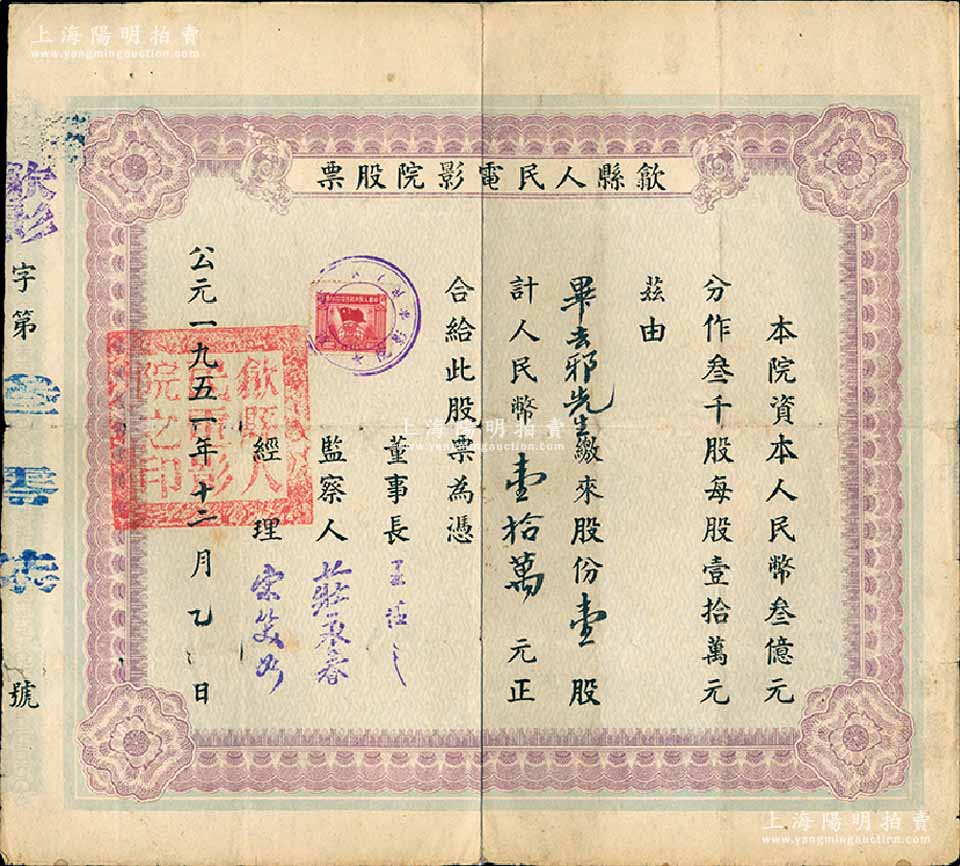 上海陽明拍賣
www.yangmingauction.com
歙縣人民電影院股票
本院資本人民幣叁億元
分作叁千股每股壹拾萬元
茲由
畢去邪先生繳來股份壹股
計人民幣壹拾萬元正
合給此股票為憑
董事長
監察人 莊承春
經理
公元一九五一年十二月 日
歙縣人民電影院之印
字第 號
上海陽明拍賣
www.yangmingauction.com
上海陽明拍賣
www.yangmingauction.com